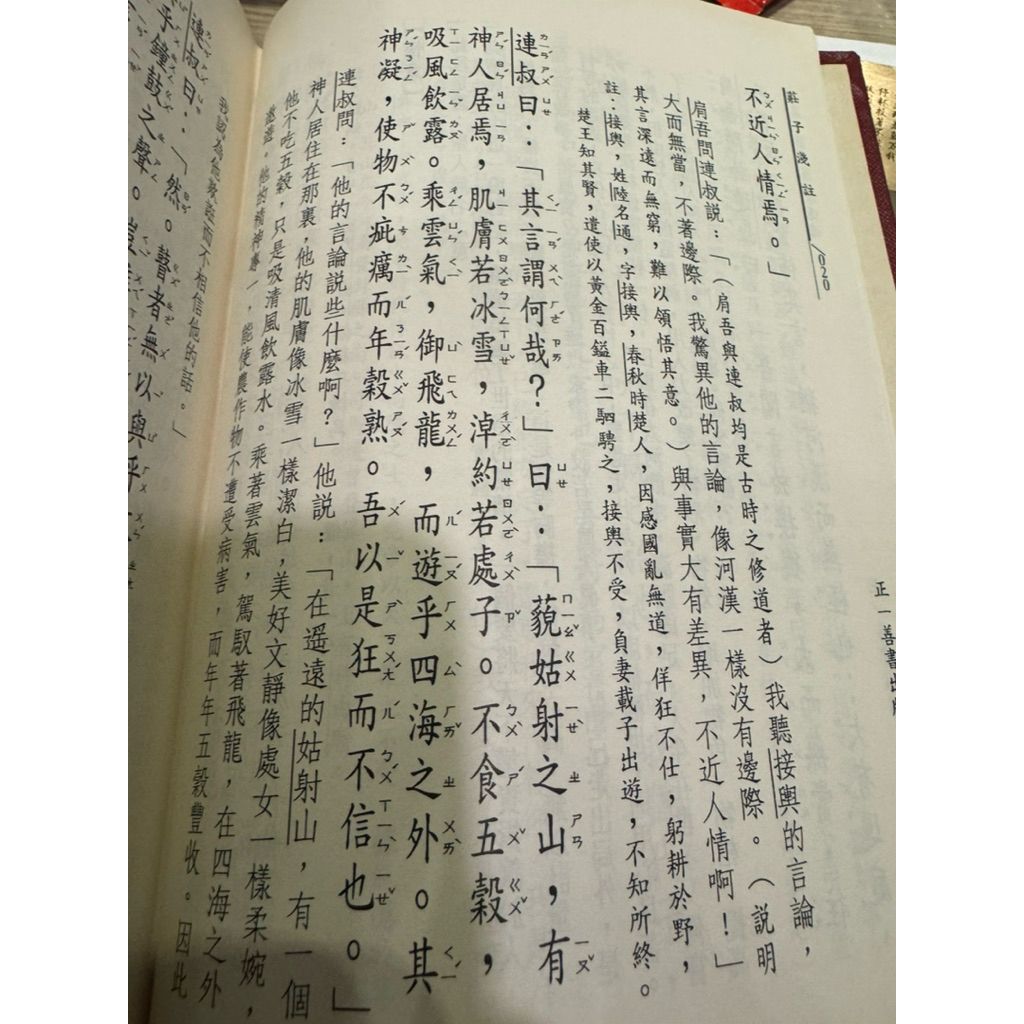 莊子淺註
020
不近人情焉。」
肩吾問連叔說：「（肩吾與連叔均是古時之修道者）我聽接輿的言論，
大而無當，不著邊際。我驚異他的言論，像河漢一樣沒有邊際。（說明
其言深遠而無窮，難以領悟其意。）與事實大有差異，不近人情啊！」
註：接輿，姓陸名通，字接輿，春秋時楚人，因感國亂無道，佯狂不仕，躬耕於野，
楚王知其賢，遣使以黃金百鎰車二駟聘之，接輿不受，負妻載子出遊，不知所終。
連叔曰：「其言謂何哉？」曰：「藐姑射之山，有
神人居焉，肌膚若冰雪，淖約若處子。不食五穀，
吸風飲露。乘雲氣，御飛龍，而遊乎四海之外。其
神凝，使物不疵癘而年穀熟。吾以是狂而不信也。」
連叔問：「他的言論說些什麼啊？」他說：「在遥遠的姑射山，有一個
神人居住在那裏，他的肌膚像冰雪一樣潔白，美好文靜像處女一樣柔婉，
他不吃五穀，只是吸清風飲露水。乘著雲氣，駕馭著飛龍，在四海之外
遨遊。他的精神專一，能使農作物不遭受病害，而年年五穀豐收。因此
我認為他欺誑而不相信他的話。」
連叔曰：「然。瞽者無以與乎
乎鐘鼓之聲。豈
正一善書出版